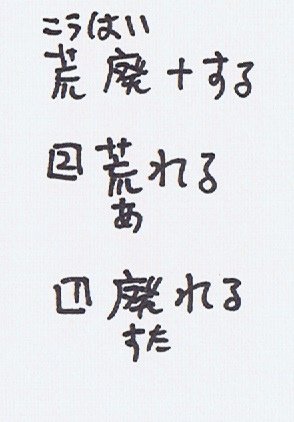 こうはい
荒廃+する
2 荒れる
あ
1 廃れる
すた